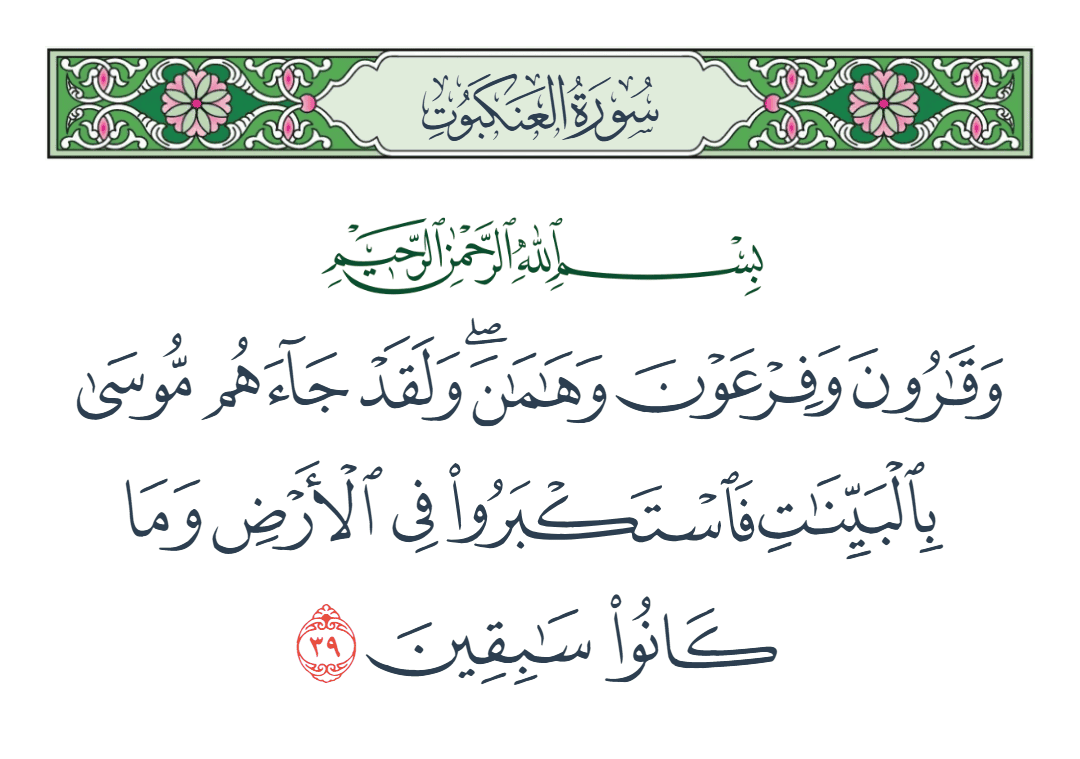 سُورَةُ الْعَنكَبُوتِ
بِسْمِ ٱللَّهِ ٱلرَّحْمَٰنِ ٱلرَّحِيمِ
وَقَٰرُونَ وَفِرْعَوْنَ وَهَٰمَٰنَۖ وَلَقَدْ جَآءَهُم مُّوسَىٰ
بِٱلْبَيِّنَٰتِ فَٱسْتَكْبَرُوا۟ فِى ٱلْأَرْضِ وَمَا
كَانُوا۟ سَٰبِقِينَ ٣٩